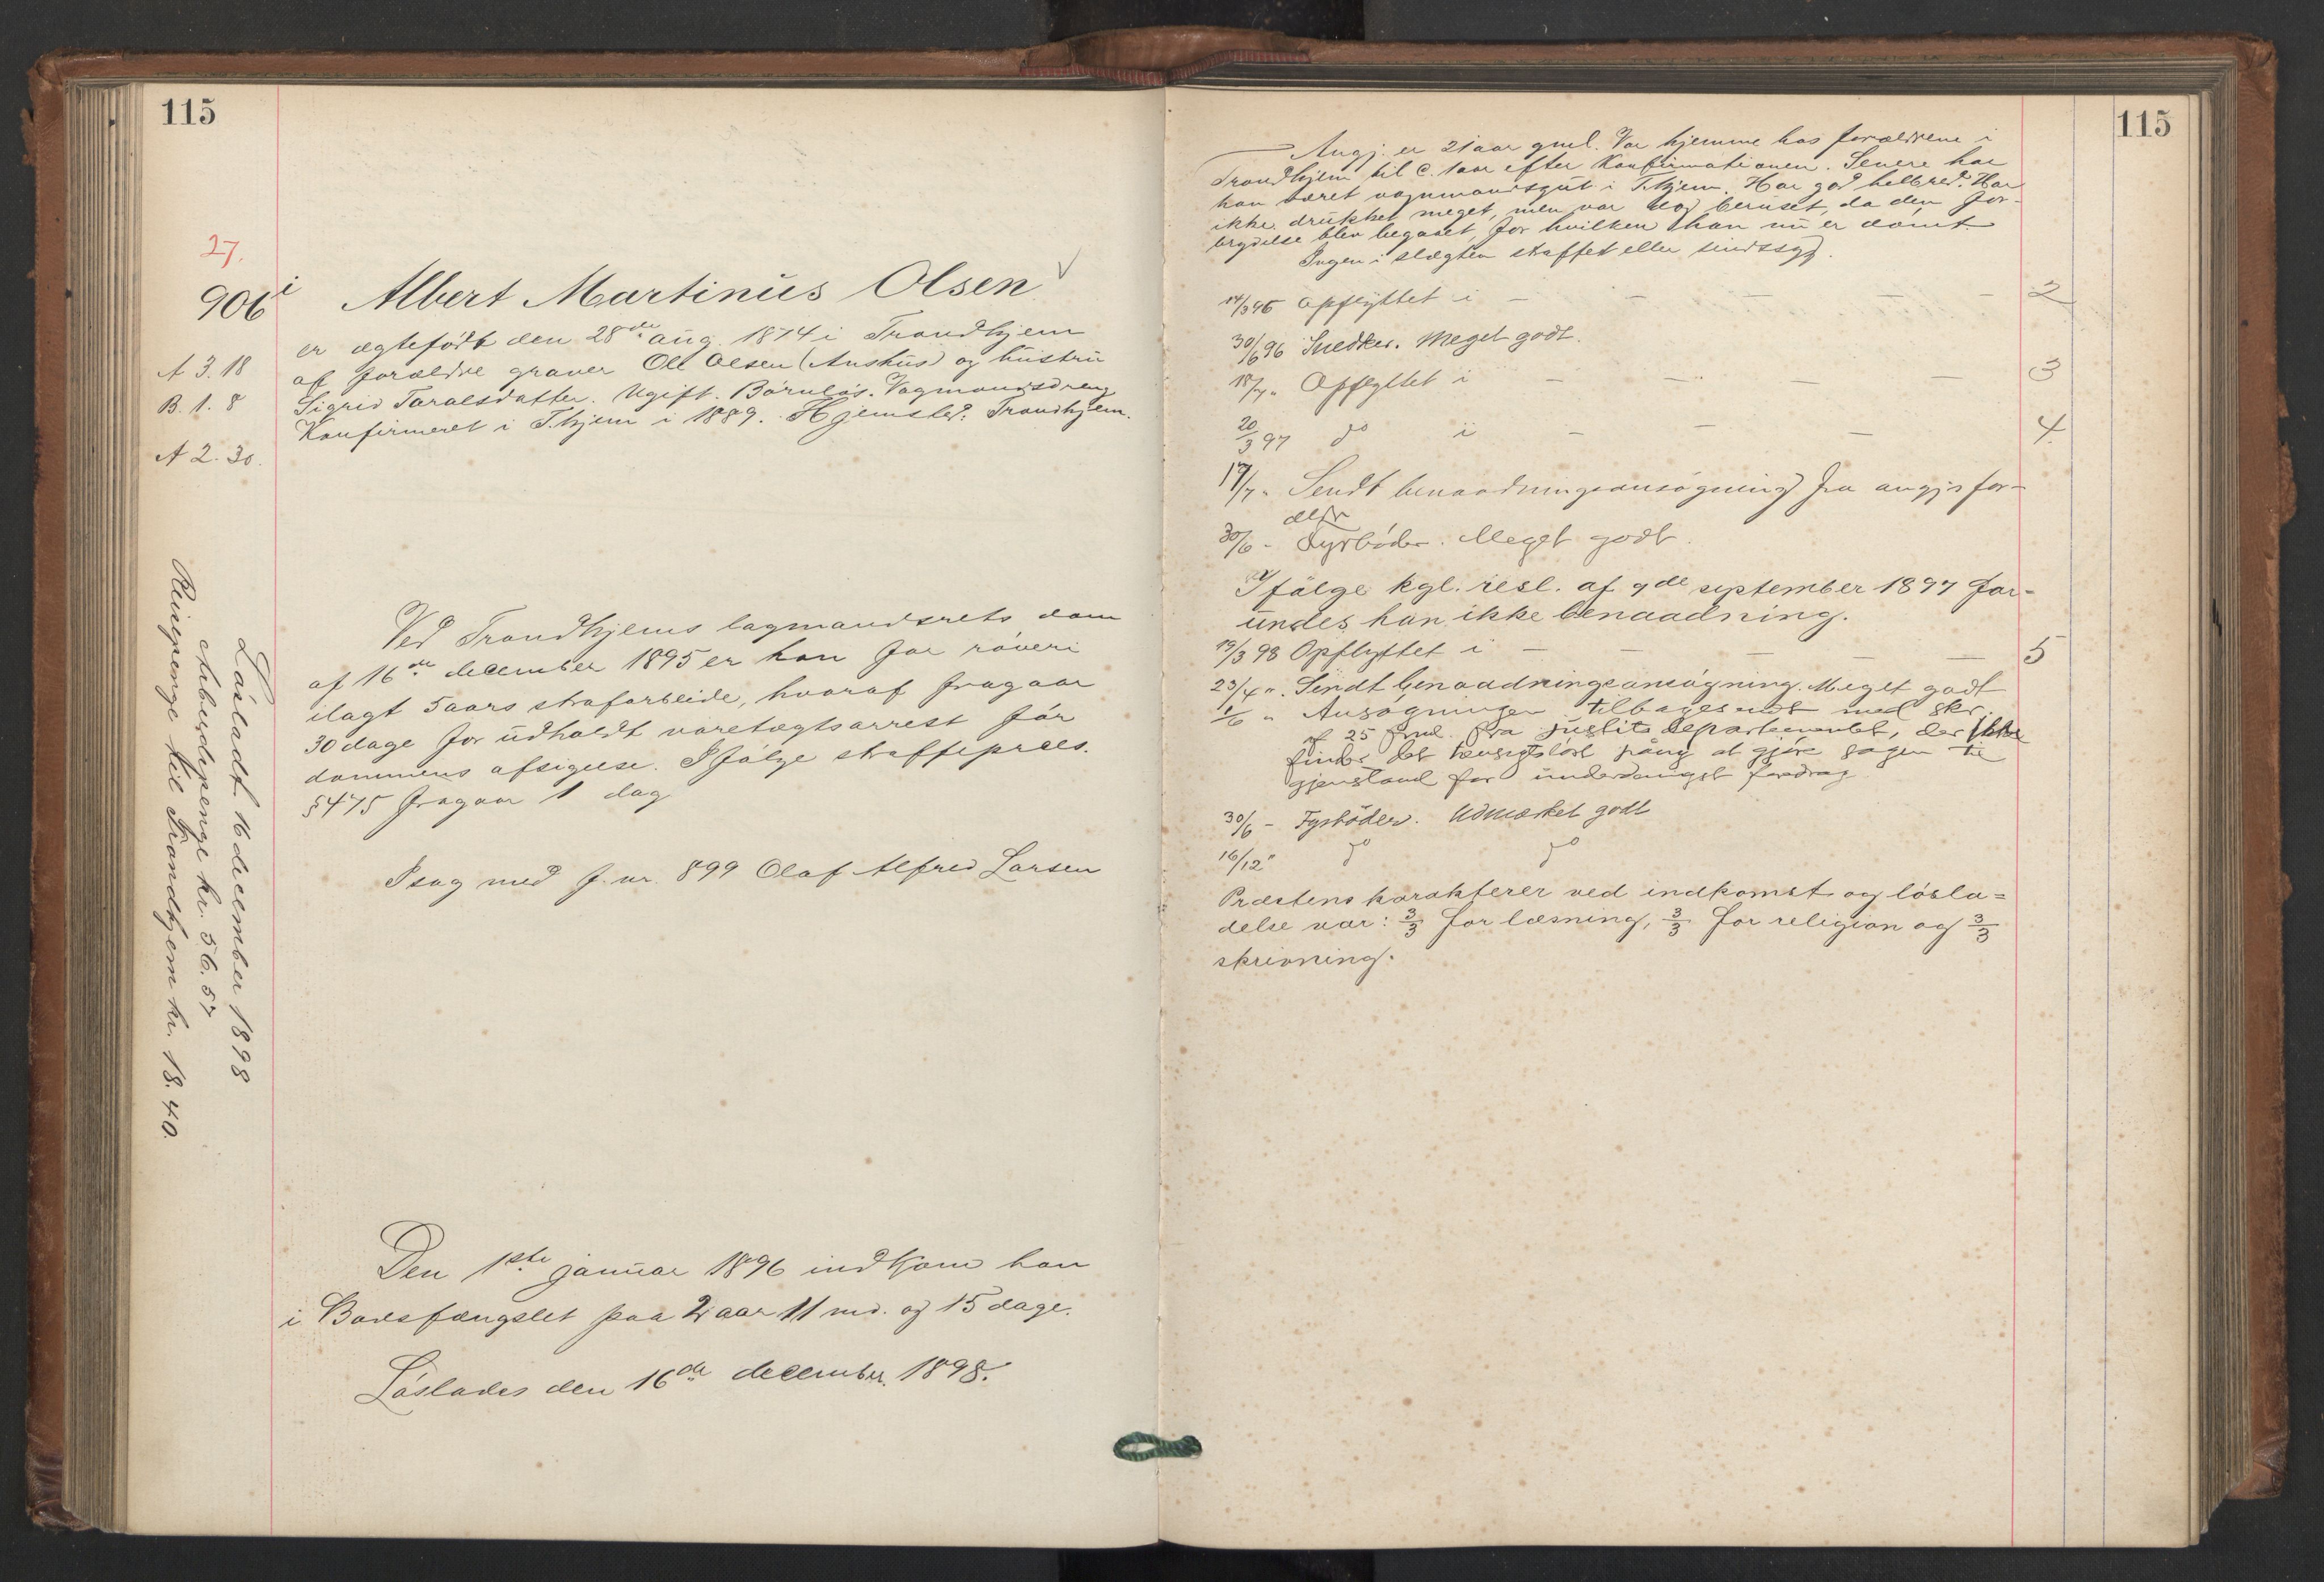 115
27.
906 i
Albert Martinus Olsen
A 3. 18
B. 1. 8
A 2. 30.
er ægtefödt den 28de aug. 1874 i Trondhjem
af forældre graver Ole Olsen (Aushus) og hustru
Sigrid Taralsdatter. Ugift. Börnlös. Vogmandsdreng
Konfirmeret i T.hjem i 1889. Hjemsted: Trondhjem.
Ved Trondhjems lagmandsrets dom
af 16de december 1895 er han for röveri
ilagt 5 aars strafarbeide, hvoraf fragaar
30 dage for udholdt varetægtsarrest för
dommens afsigelse. Ifölge straffeproces.
§ 475 fragaar 1 dag
I sag med f. nr. 899 Olaf Alfred Larsen
Den 1ste januar 1896 indkom han
i Bodsfængslet paa 2 aar 11 md. og 15 dage.
Löslades den 16de december 1898.
Lösladt 16 december 1898
Arbeidspenge kr. 56.57
Reisepenge til Trondhjem kr. 18.40.
115
Angj. er 21 aar gml. Var hjemme hos forældrene i
Trondhjem til c. 1 aar efter Konfirmationen. Senere har
han været vognmandsgut i T.hjem. Har god helbred. Har
ikke drukket meget, men var dog beruset, da den for-
brydelse blev begaaet, for hvilken han nu er dömt.
Ingen i slægten straffet eller sindssyg.
14/3 96 Opflyttet i — — — — — 2
30/6 96 Snedker. Meget godt.
18/7 " Opflyttet i — — — — 3
20/3 97 do i — — — 4.
17/7 " Sendt benaadningsansögning fra angjs for-
ældre
30/6 - Fyrböder. Meget godt.
Ifölge kgl. resl. af 9de september 1897 for-
undes han ikke benaadning.
19/3 98 Opflyttet i — — — — 5
23/4 " Sendt benaadningsansögning. Meget godt
1/6 " Ansögningen tilbagesendt med skr.
af 25 f.md. fra justitsdepartementet, der ikke
finder det hensigtslöst paany at gjöre sagen til
gjenstand for underdanigst foredrag
30/6 - Fyrböder. Udmærket godt
16/12 " do do
Præstens karakterer ved indkomst og lösla=
delse var: 3/3 for læsning, 3/3 for religion og 3/3
skrivning.